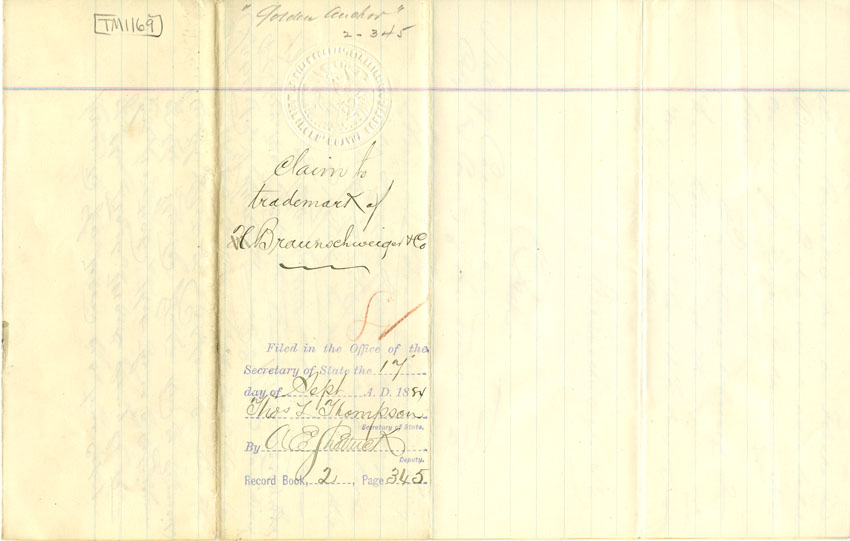 TM1169
"Golden Anchor"
2-345
Claim to
trademark of
H Braunschweiger & Co
Filed in the Office of the
Secretary of State the 17
day of Sept A. D. 1884
Thos L Thompson
Secretary of State.
By A E Shattuck
Deputy.
Record Book, 2, Page 345